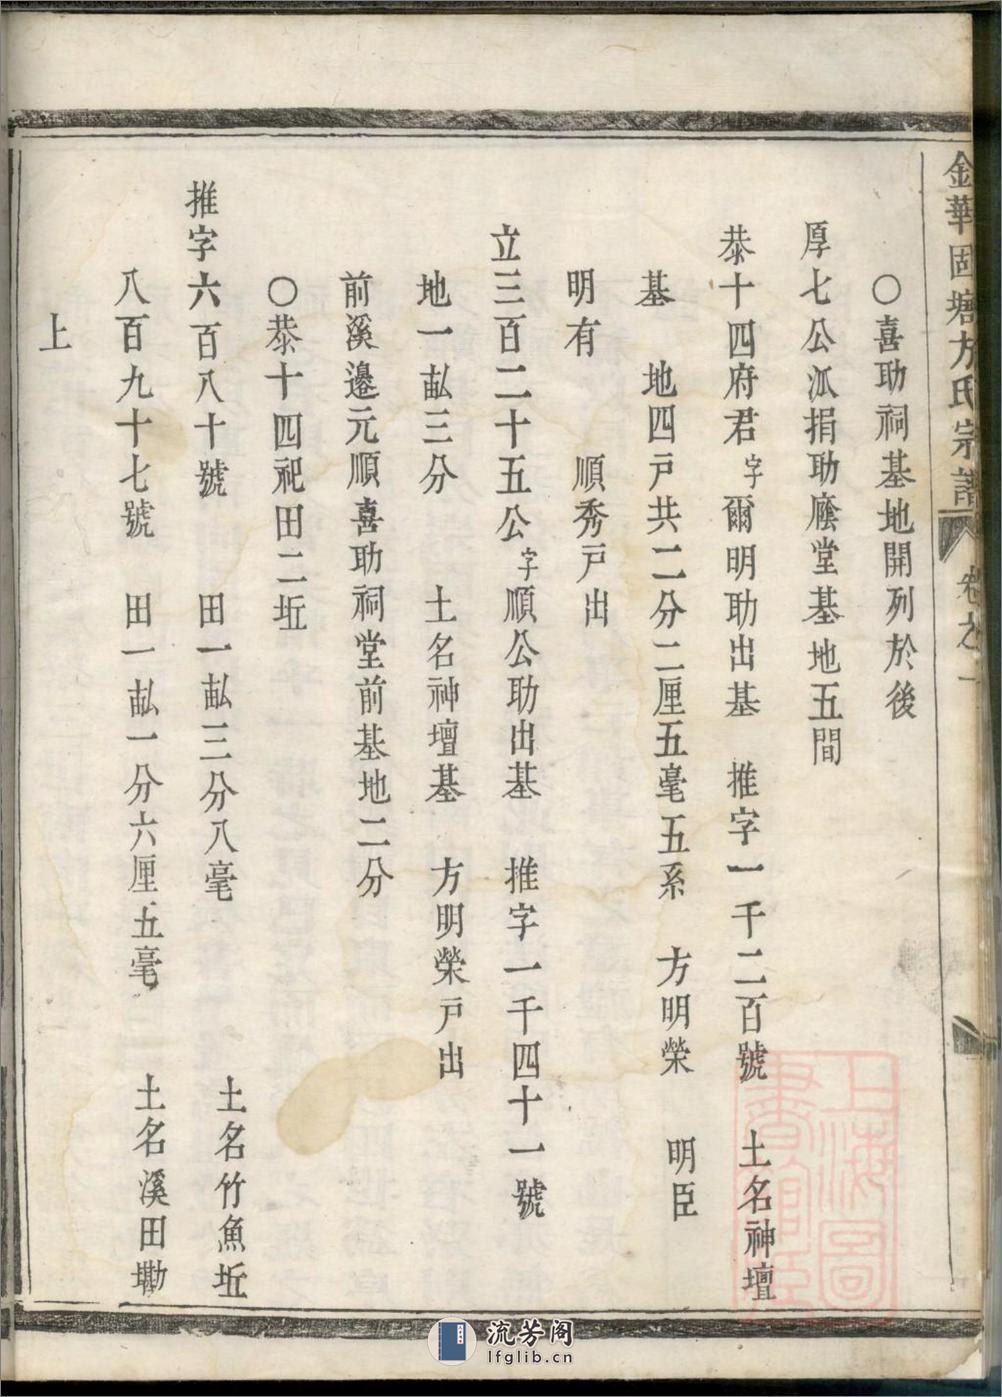 金華固塘方氏宗譜 卷之一
○喜助祠基地開列於後
厚七公派捐助廳堂基地五間
恭十四府君字爾明助出基 推字一千二百號 土名神壇
基 地四戶共二分二厘五毫五系 方明榮 明臣
明有 順秀戶出
立三百二十五公字順公助出基 推字一千四十一號
地一畝三分 土名神壇基 方明榮戶出
前溪邊元順喜助祠堂前基地二分
○恭十四祀田二坵
推字六百八十號 田一畝三分八毫 土名竹魚坵
八百九十七號 田一畝一分六厘五毫 土名溪田墈
上
上海圖
書館藏
流芳阁
lfglib.cn